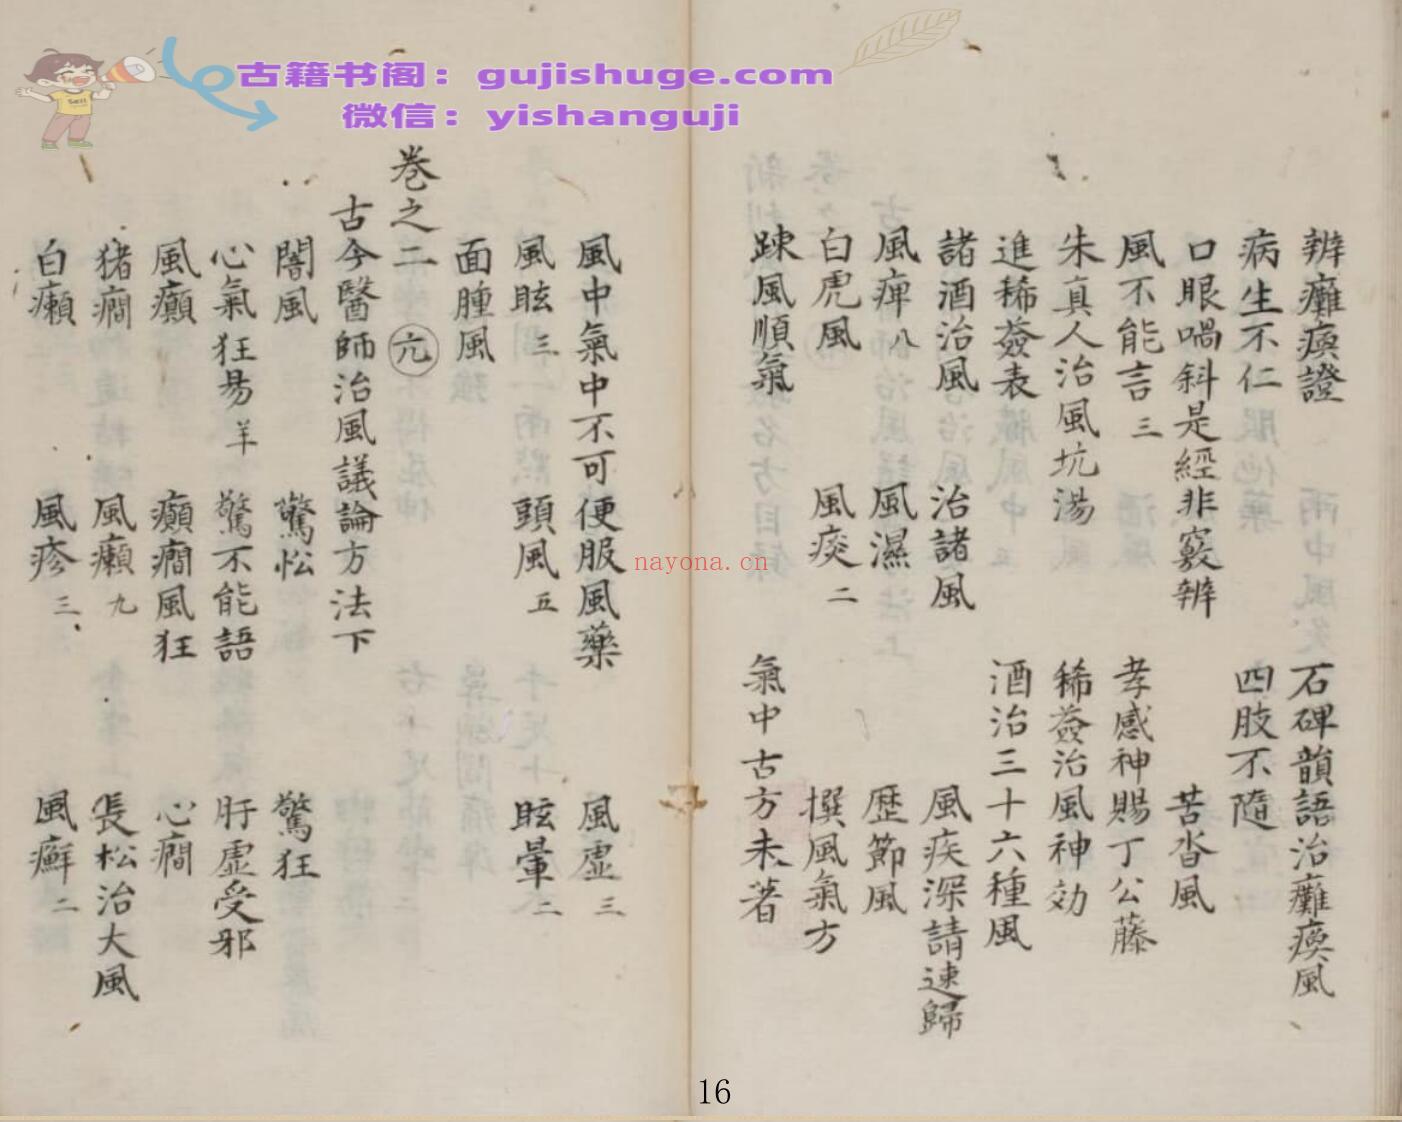 古籍书阁：gujishuge.com
微信：yishanguji
辨癱瘓證 石碑韻語治癱瘓風
病生不仁 四肢不隨
口眼喎斜是經非竅辨 苦沓風
風不能言三 孝感神賜丁公藤
朱真人治風坑湯 豨薟治風神効
進稀薟表 酒治三十六種風
諸酒治風 治諸風 風疾深請速歸
風痺八 風濕 歷節風
白虎風 風痰二 撰風氣方
踈風順氣 氣中古方未著
風中氣中不可便服風藥 風虛三
風眩三 頭風五 眩暈二
面腫風
卷之二 元
古今醫師治風議論方法下
闇風 驚忪 驚狂
心氣狂易羊 驚不能語 肝虛受邪
風癲 癲癇風狂 心癇
猪癇 風癩九 長松治大風
白癩 風疹三 風癬二
nayona.cn
16